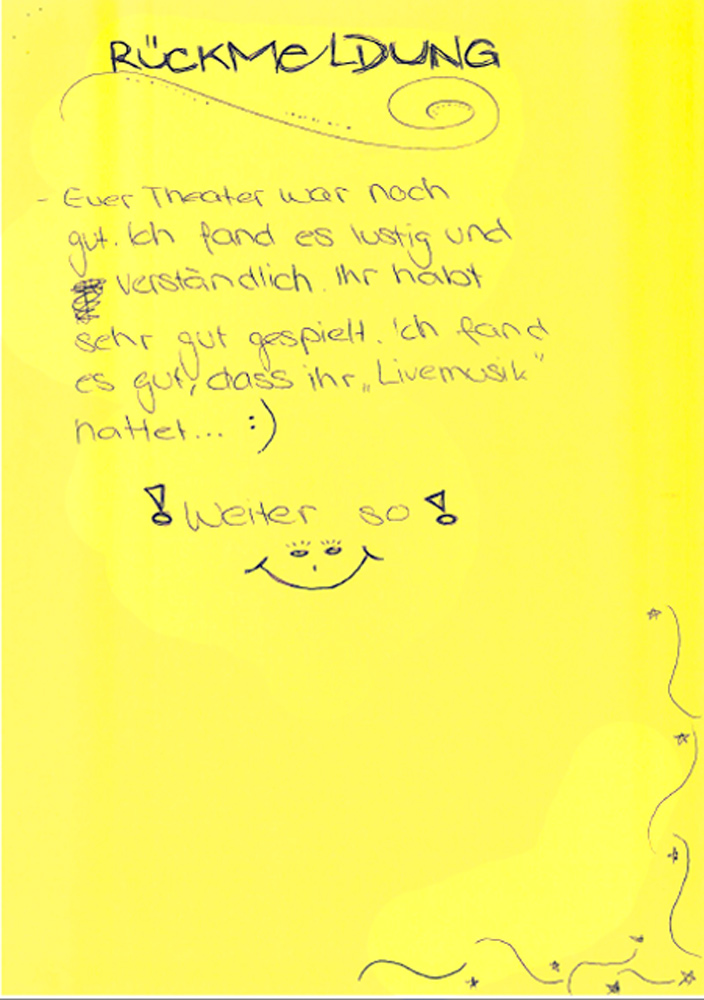 RÜCKMELDUNG
- Euer Theater war noch
gut. Ich fand es lustig und
verständlich. Ihr habt
sehr gut gespielt. Ich fand
es gut, dass ihr „Livemusik"
hattet... :)
! Weiter so !